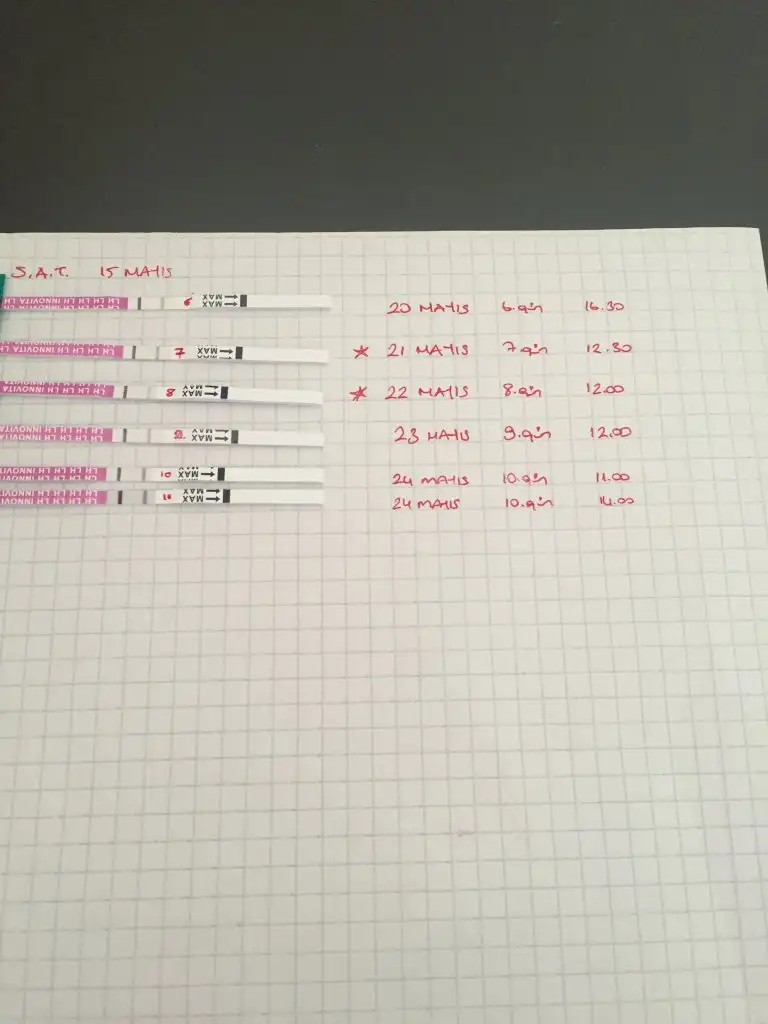 S.A.T. 15 MAYIS
LH LH LH LH INNOVITA LH 6 MAX MAX 20 MAYIS 6.gün 16.30
LH LH LH LH INNOVITA 7 MAX * 21 MAYIS 7.gün 12.30
LH LH LH LH INNOVITA 8 MAX * 22 MAYIS 8.gün 12.00
LH LH LH LH INNOVITA MAX 23 MAYIS 9.gün 12.00
LH LH LH INNOVITA 10 MAX 24 MAYIS 10.gün 11.00
LH LH LH INNOVITA MAX 24 MAYIS 10.gün 14.00